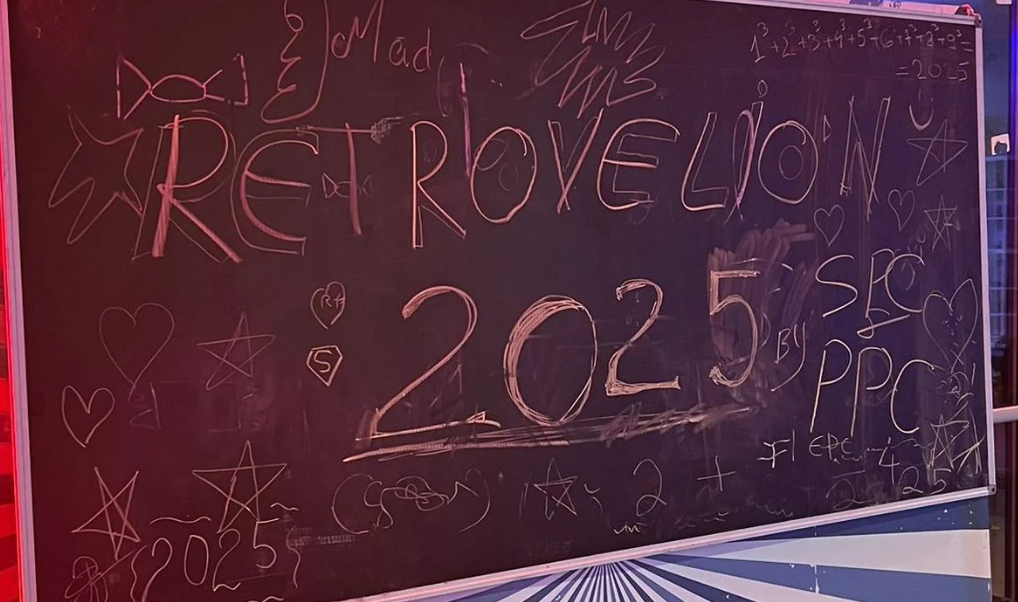 Mad
1³+2³+3³+4³+5³+6³+7³+8³+9³=
=2025
RETROVELION
2025
BY
SPC
PPC
S
2025